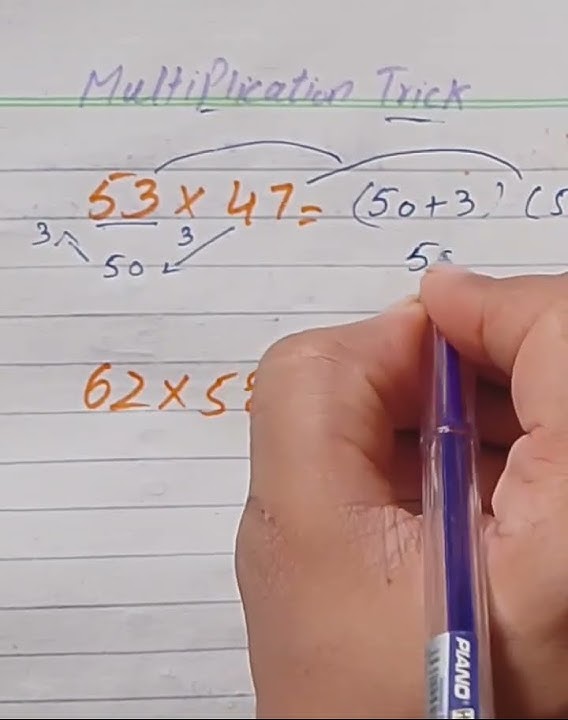 MultiPlication Trick
53 × 47 = (50+3) (5
3 50 3
5
62 × 5
PIANO